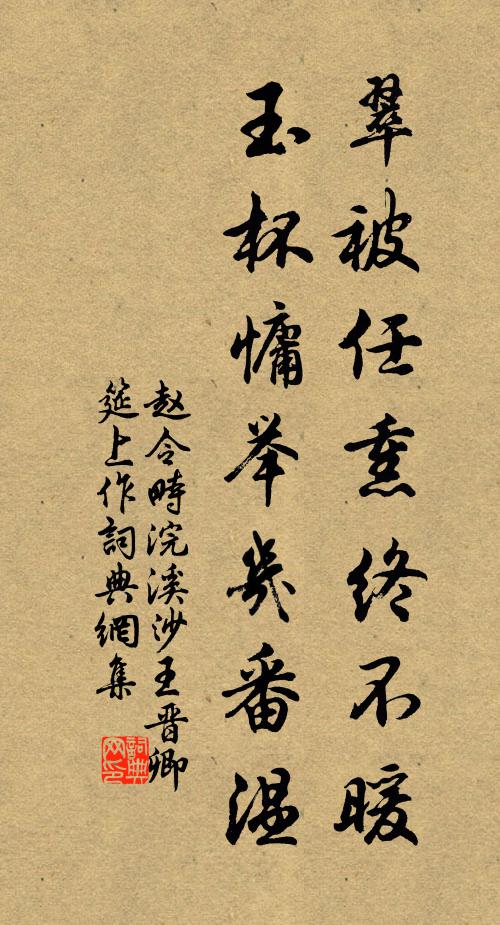 翠被任熏终不暖
玉杯慵举几番温
赵令畤浣溪沙王晋卿
筵上作词典网集
词典
网印